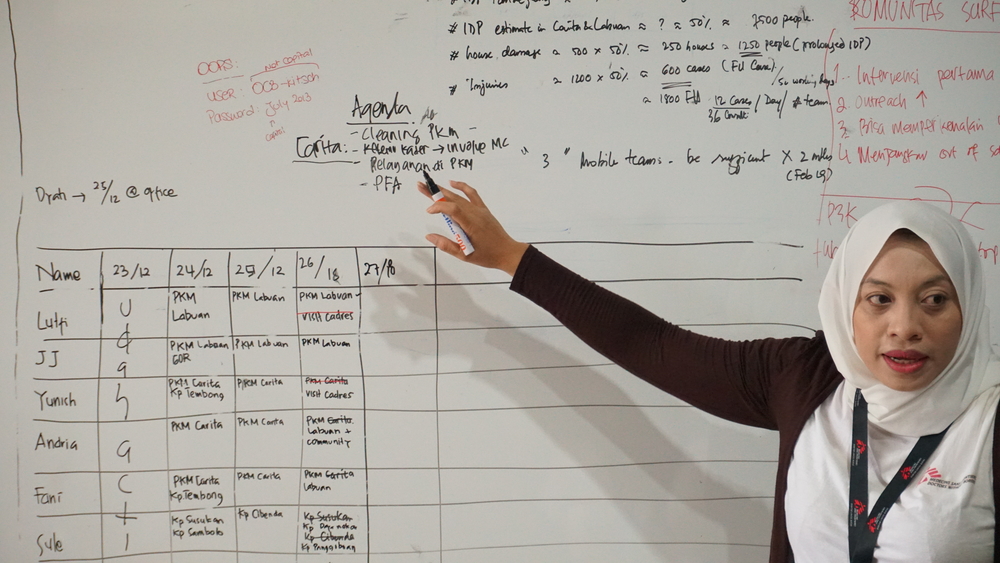 # IDP estimate in Carita & Labuan ≈ ? ≈ 50% ≈ 2500 people.
# house damage ≈ 500 x 50% ≈ 250 houses ≈ 1250 people (prolonged IDP)
# Injuries ≈ 1200 x 50% ≈ 600 cases (FU Case)
≈ 1800 FU 12 Cases / Day / # team
"3" Mobile teams - be sufficient X 2 mths
(Feb 19)
KOMUNITAS
1. Intervensi pertama
2. outreach ↑
3. Bisa memperkenalkan
4. Menjangkau out of
P3K
OOPS:
not capital
user: OCB-
Password: July 2013
Agenda
Carita: - Cleaning PKM -
- Kader → involve MC
- di PKM
- PFA
Dyah → 25/12 @ office
Name 23/12 24/12 25/12 26/18 27/18
Lutfi PKM Labuan PKM Labuan PKM Labuan - visit Cadres
JJ PKM Labuan GOR PKM Labuan PKM Labuan
Yunich PKM Carita Kp Tembong PKM Carita PKM Carita visit Cadres
Andria PKM Carita PKM Carita PKM Carita Labuan + community
Fani PKM Carita Kp.Tembong PKM Carita PKM Carita Labuan
Sule Kp Susukan Kp Sambolo Kp Cibenda Kp Susukan Kp Kp Cibenda Kp